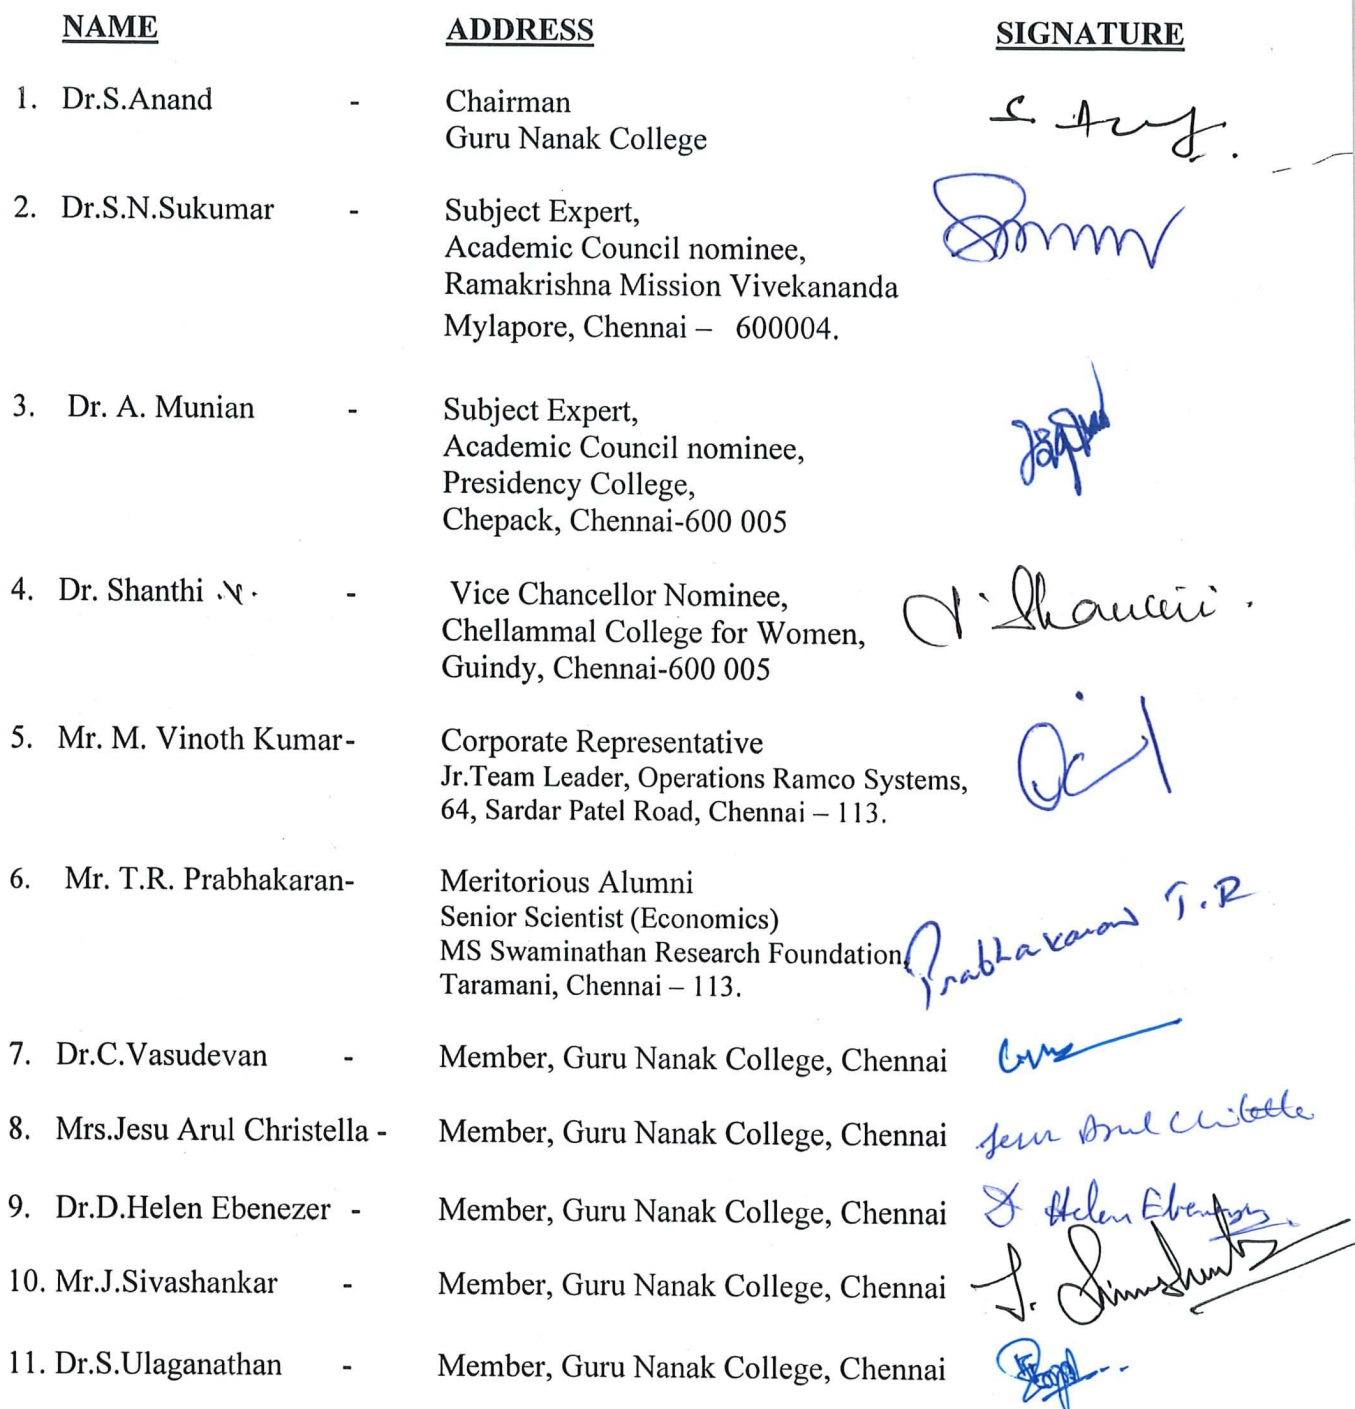 NAME ADDRESS SIGNATURE
1. Dr.S.Anand - Chairman
Guru Nanak College
2. Dr.S.N.Sukumar - Subject Expert,
Academic Council nominee,
Ramakrishna Mission Vivekananda
Mylapore, Chennai – 600004.
3. Dr. A. Munian - Subject Expert,
Academic Council nominee,
Presidency College,
Chepack, Chennai-600 005
4. Dr. Shanthi - Vice Chancellor Nominee,
Chellammal College for Women,
Guindy, Chennai-600 005
5. Mr. M. Vinoth Kumar- Corporate Representative
Jr.Team Leader, Operations Ramco Systems,
64, Sardar Patel Road, Chennai – 113.
6. Mr. T.R. Prabhakaran- Meritorious Alumni
Senior Scientist (Economics)
MS Swaminathan Research Foundation, Prabhakaran T.R
Taramani, Chennai – 113.
7. Dr.C.Vasudevan - Member, Guru Nanak College, Chennai
8. Mrs.Jesu Arul Christella - Member, Guru Nanak College, Chennai
9. Dr.D.Helen Ebenezer - Member, Guru Nanak College, Chennai D Helen Ebenezer
10. Mr.J.Sivashankar - Member, Guru Nanak College, Chennai
11. Dr.S.Ulaganathan - Member, Guru Nanak College, Chennai